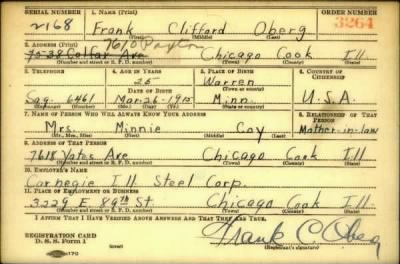 SERIAL NUMBER 1. NAME (Print) ORDER NUMBER
2168 Frank Clifford Oberg 3264
(First) (Middle) (Last)
2. ADDRESS (Print) 7610
Ave Chicago Cook Ill.
(Number and street or R. F. D. number) (Town) (County) (State)
3. TELEPHONE 4. AGE IN YEARS 5. PLACE OF BIRTH 6. COUNTRY OF CITIZENSHIP
25 Warren
DATE OF BIRTH (Town or county)
Sag. 6461 Mar-26-1915 Minn. U.S.A.
(Exchange) (Number) (Mo.) (Day) (Yr.) (State or country)
7. NAME OF PERSON WHO WILL ALWAYS KNOW YOUR ADDRESS 8. RELATIONSHIP OF THAT PERSON
Mrs. Minnie Coy Mother-in-law
(Mr., Mrs., Miss) (First) (Middle) (Last)
9. ADDRESS OF THAT PERSON
7618 Yates Ave Chicago Cook Ill.
(Number and street or R. F. D. number) (Town) (County) (State)
10. EMPLOYER'S NAME
Carnegie Ill Steel Corp.
11. PLACE OF EMPLOYMENT OR BUSINESS
3229 E. 89th St. Chicago Cook Ill.
(Number and street or R. F. D. number) (Town) (County) (State)
I AFFIRM THAT I HAVE VERIFIED ABOVE ANSWERS AND THAT THEY ARE TRUE.
REGISTRATION CARD
D. S. S. Form 1 (over) Frank C. Oberg
(Registrant's signature)